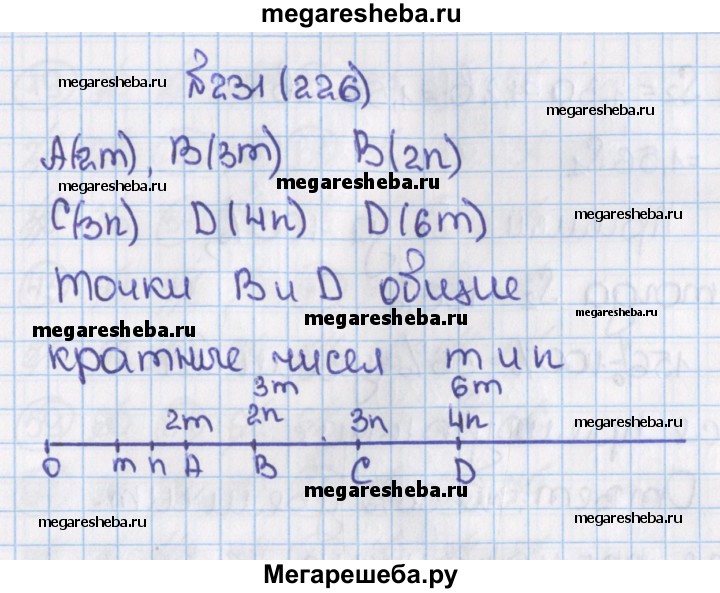 megaresheba.ru
megaresheba.ru №231 (226) megaresheba.ru
A(2m), B(3m) B(2n)
megaresheba.ru megaresheba.ru megaresheba.ru
C(3n) D(4n) D(6m)
точки B и D общие
megaresheba.ru megaresheba.ru megaresheba.ru
кратные чисел m и n
3m 6m
2m 2n 3n 4n megaresheba.ru
0 m n A B C D
megaresheba.ru
megaresheba.ru megaresheba.ru
Мегарешеба.ру